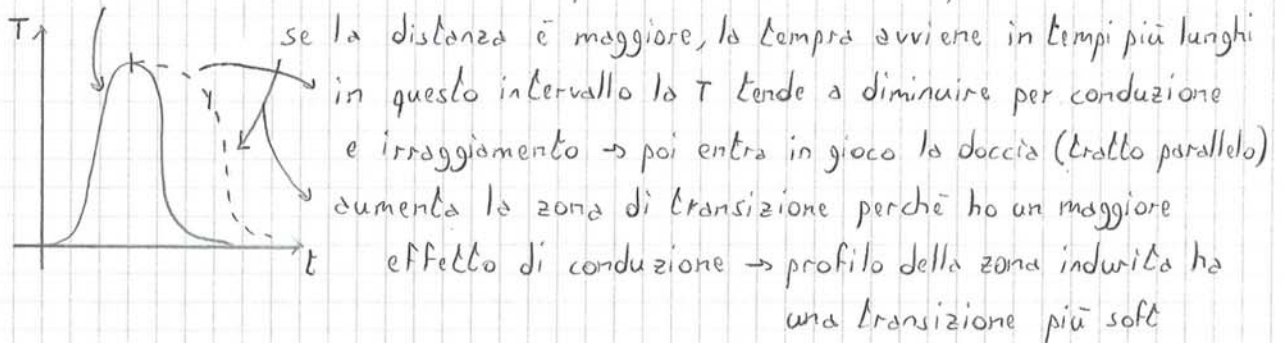 T
se la distanza è maggiore, la tempra avviene in tempi più lunghi
in questo intervallo la T tende a diminuire per conduzione
e irraggiamento → poi entra in gioco la doccia (tratto parallelo)
aumenta la zona di transizione perché ho un maggiore
t effetto di conduzione → profilo della zona indurita ha
una transizione più soft